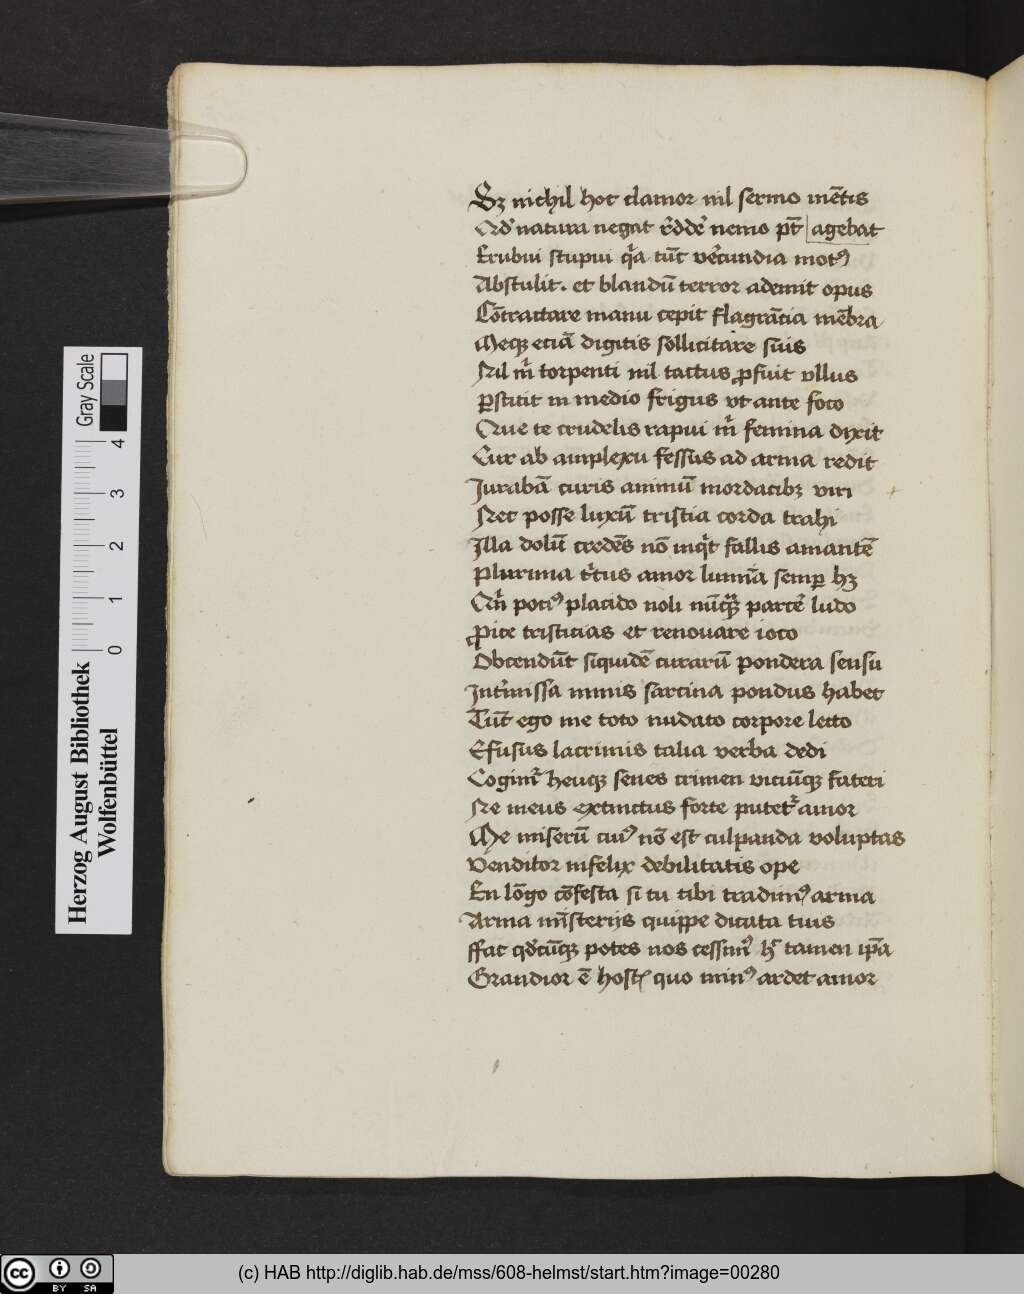 Sz nichil hoc clamor nil sermo mētis agebat
Qd' natura negat r̄ddē nemo pt̄
Erubui stupui q̄a tūc vēcundia motꝰ
Abstulit. et blandū terror ademit opus
Cōtractare manu cepit flagrācia mēbra
Meqꝫ eciā digitis sollicitare suis
Nil m̄ torpenti nil tactus ꝓfuit vllus
ꝑstitit in medio frigus vt ante foco
Que te crudelis rapui m̄ femina dixit
Cur ab amplexu fessus ad arma redit
Jurabā curis animū mordacibꝫ viri
Nec posse luxū tristia corda trahi
Illa dolū credēs nō inq̄t fallis amantē
Plurima c̄tus amor lumīa semꝑ hꝫ
Qn̄ pociꝰ placido noli nūc̄qꝫ partē ludo
ꝓice tristicias et renouare ioco
Obtendūt siquidē curarū pondera sensu
Intm̄issa minus sarcina pondus habet
Tūc ego me toto nudato corpore lecto
Efusus lacrimis talia verba dedi
Cogimr̄ heuqꝫ senes crimen viciūqꝫ fateri
Ne meus extinctus forte putetr̄ amor
Me miserū cuiꝰ nō est culpanda voluptas
Venditor infelix debilitatis ope
En lōgo cōfesta si tu tibi tradimꝰ arma
Arma mīsterijs quippe dicata tuis
ffac qd'cūqꝫ potes nos cessimꝰ h̄ tamen ip̄a
Grandior ē hostꝭ quo minꝰ ardet amor
Herzog August Bibliothek
Wolfenbüttel
Gray Scale
0 1 2 3 4
cc BY SA
(c) HAB http://diglib.hab.de/mss/608-helmst/start.htm?image=00280